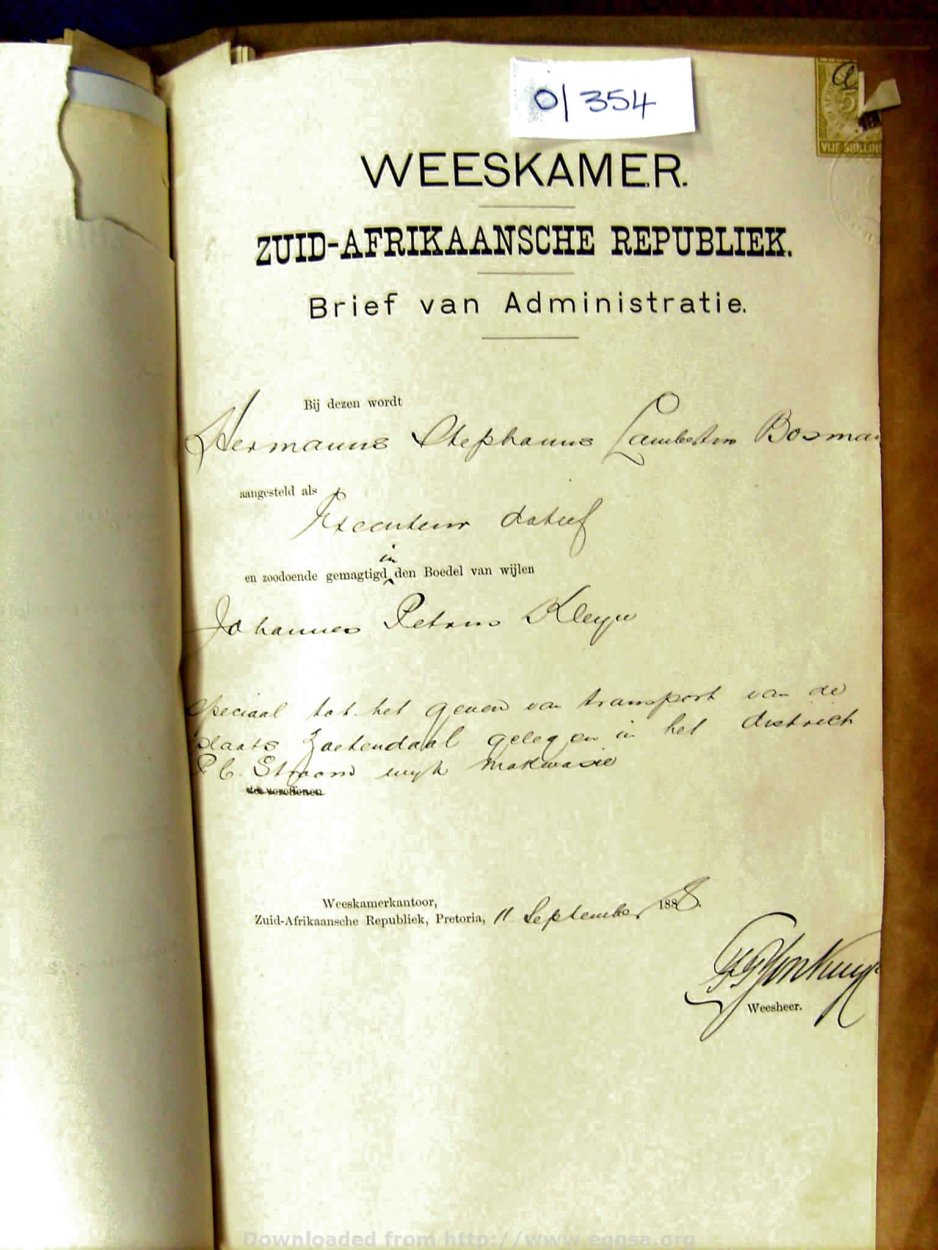 0/354
VIJF SHILLING
WEESKAMER.
ZUID-AFRIKAANSCHE REPUBLIEK.
Brief van Administratie.
Bij dezen wordt
Hermanus Stephanus Lambertus Bosman
aangesteld als
Executeur datief
in
en zoodoende gemagtigd den Boedel van wijlen
Johannes Petrus Kleyn
speciaal tot het geven van transport van de
plaats Zoetendaal gelegen in het district
P C. Stroom wyk Makwasie
te vereffenen
Weeskamerkantoor,
Zuid-Afrikaansche Republiek, Pretoria, 11 September 1888.
Weesheer.
Downloaded from http://www.eggsa.org